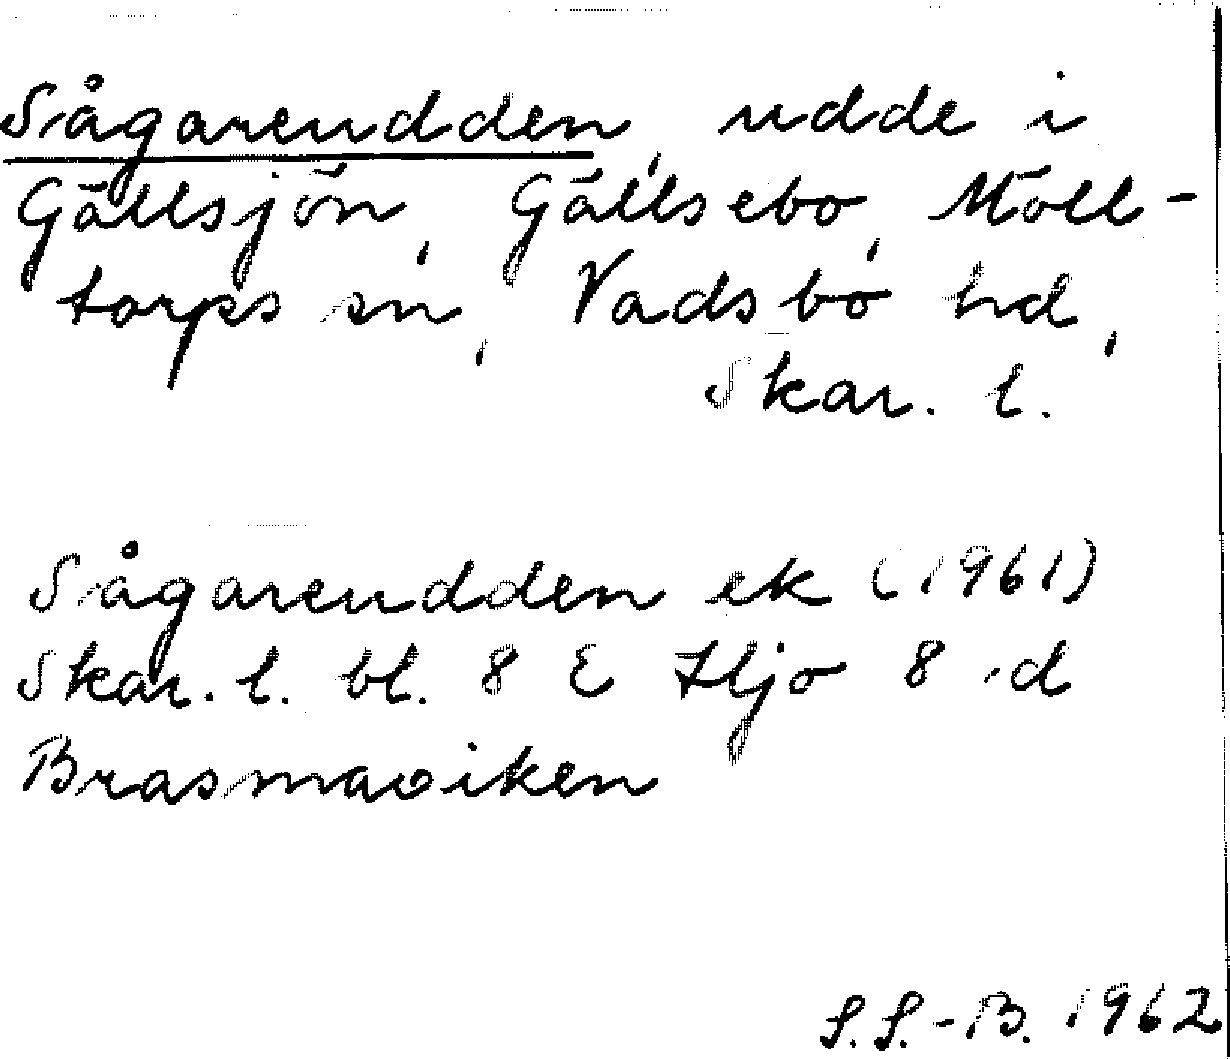 Sågarendden, udde i
Gällsjön, Gällsebo, Möll-
torps sn, Vadsbo hd,
Skar. l.
Sågarendden ek (1961)
Skar. l. bl. 8 E Hjo 8 d
Brasmaviken
S.S.-B. 1962